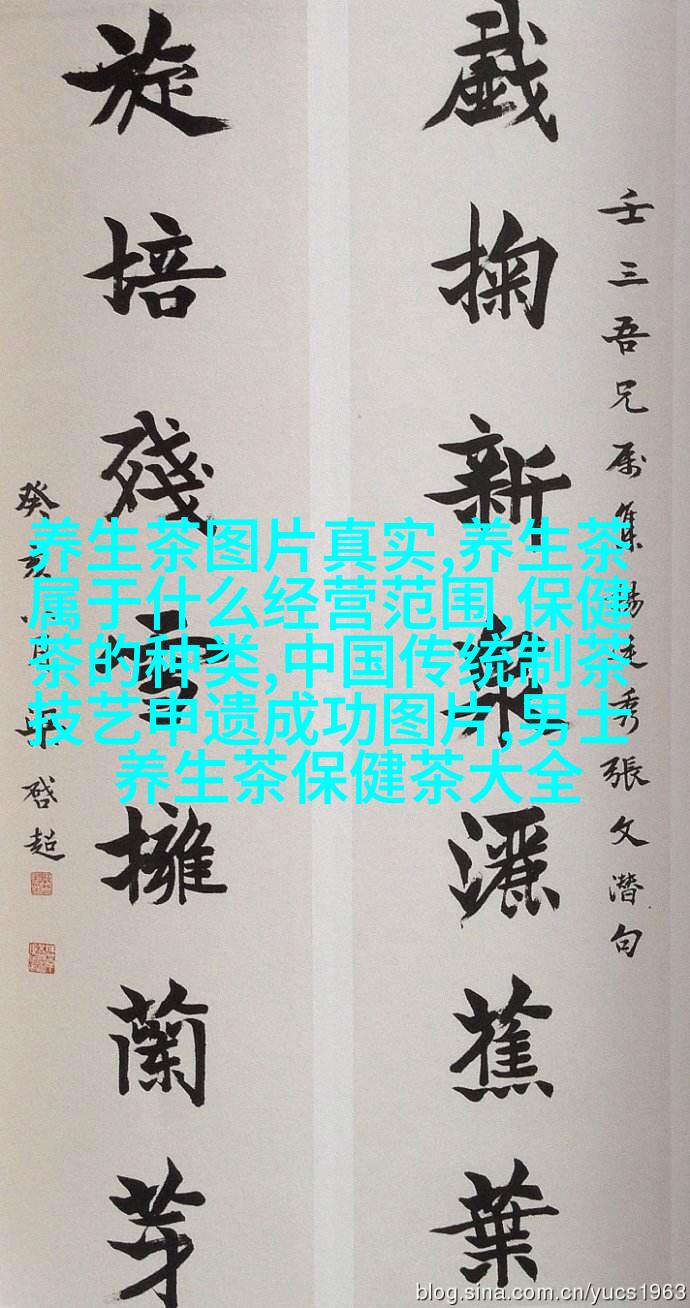 戲掬新泉灑蕉葉
壬三吾兄属集楊廷秀張文潛句
旋培殘雪擁蘭芽
癸亥月梁啓超
养生茶图片真实,养生茶
属于什么经营范围,保健
茶的种类,中国传统制茶
技艺申遗成功图片,男士
养生茶保健茶大全
blog.sina.com.cn/yucs1963